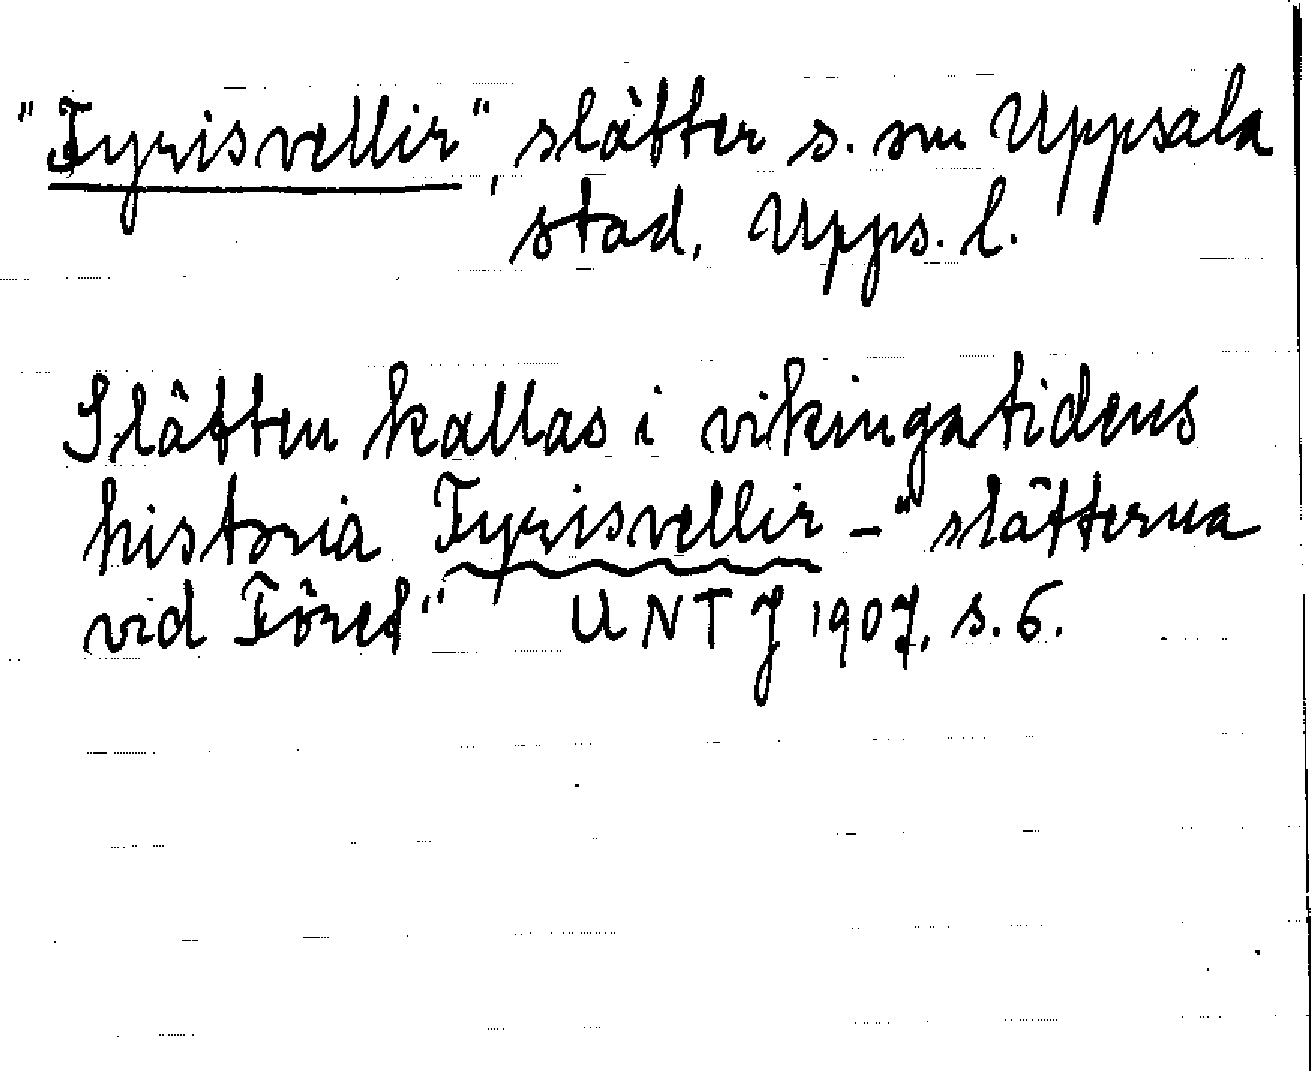 "Fyrisvellir", slätter s. om Uppsala
stad, Upps. l.
Slätten kallas i vikingatidens
historia Fyrisvellir – "slätterna
vid Föret" UNT J 1907, s. 6.